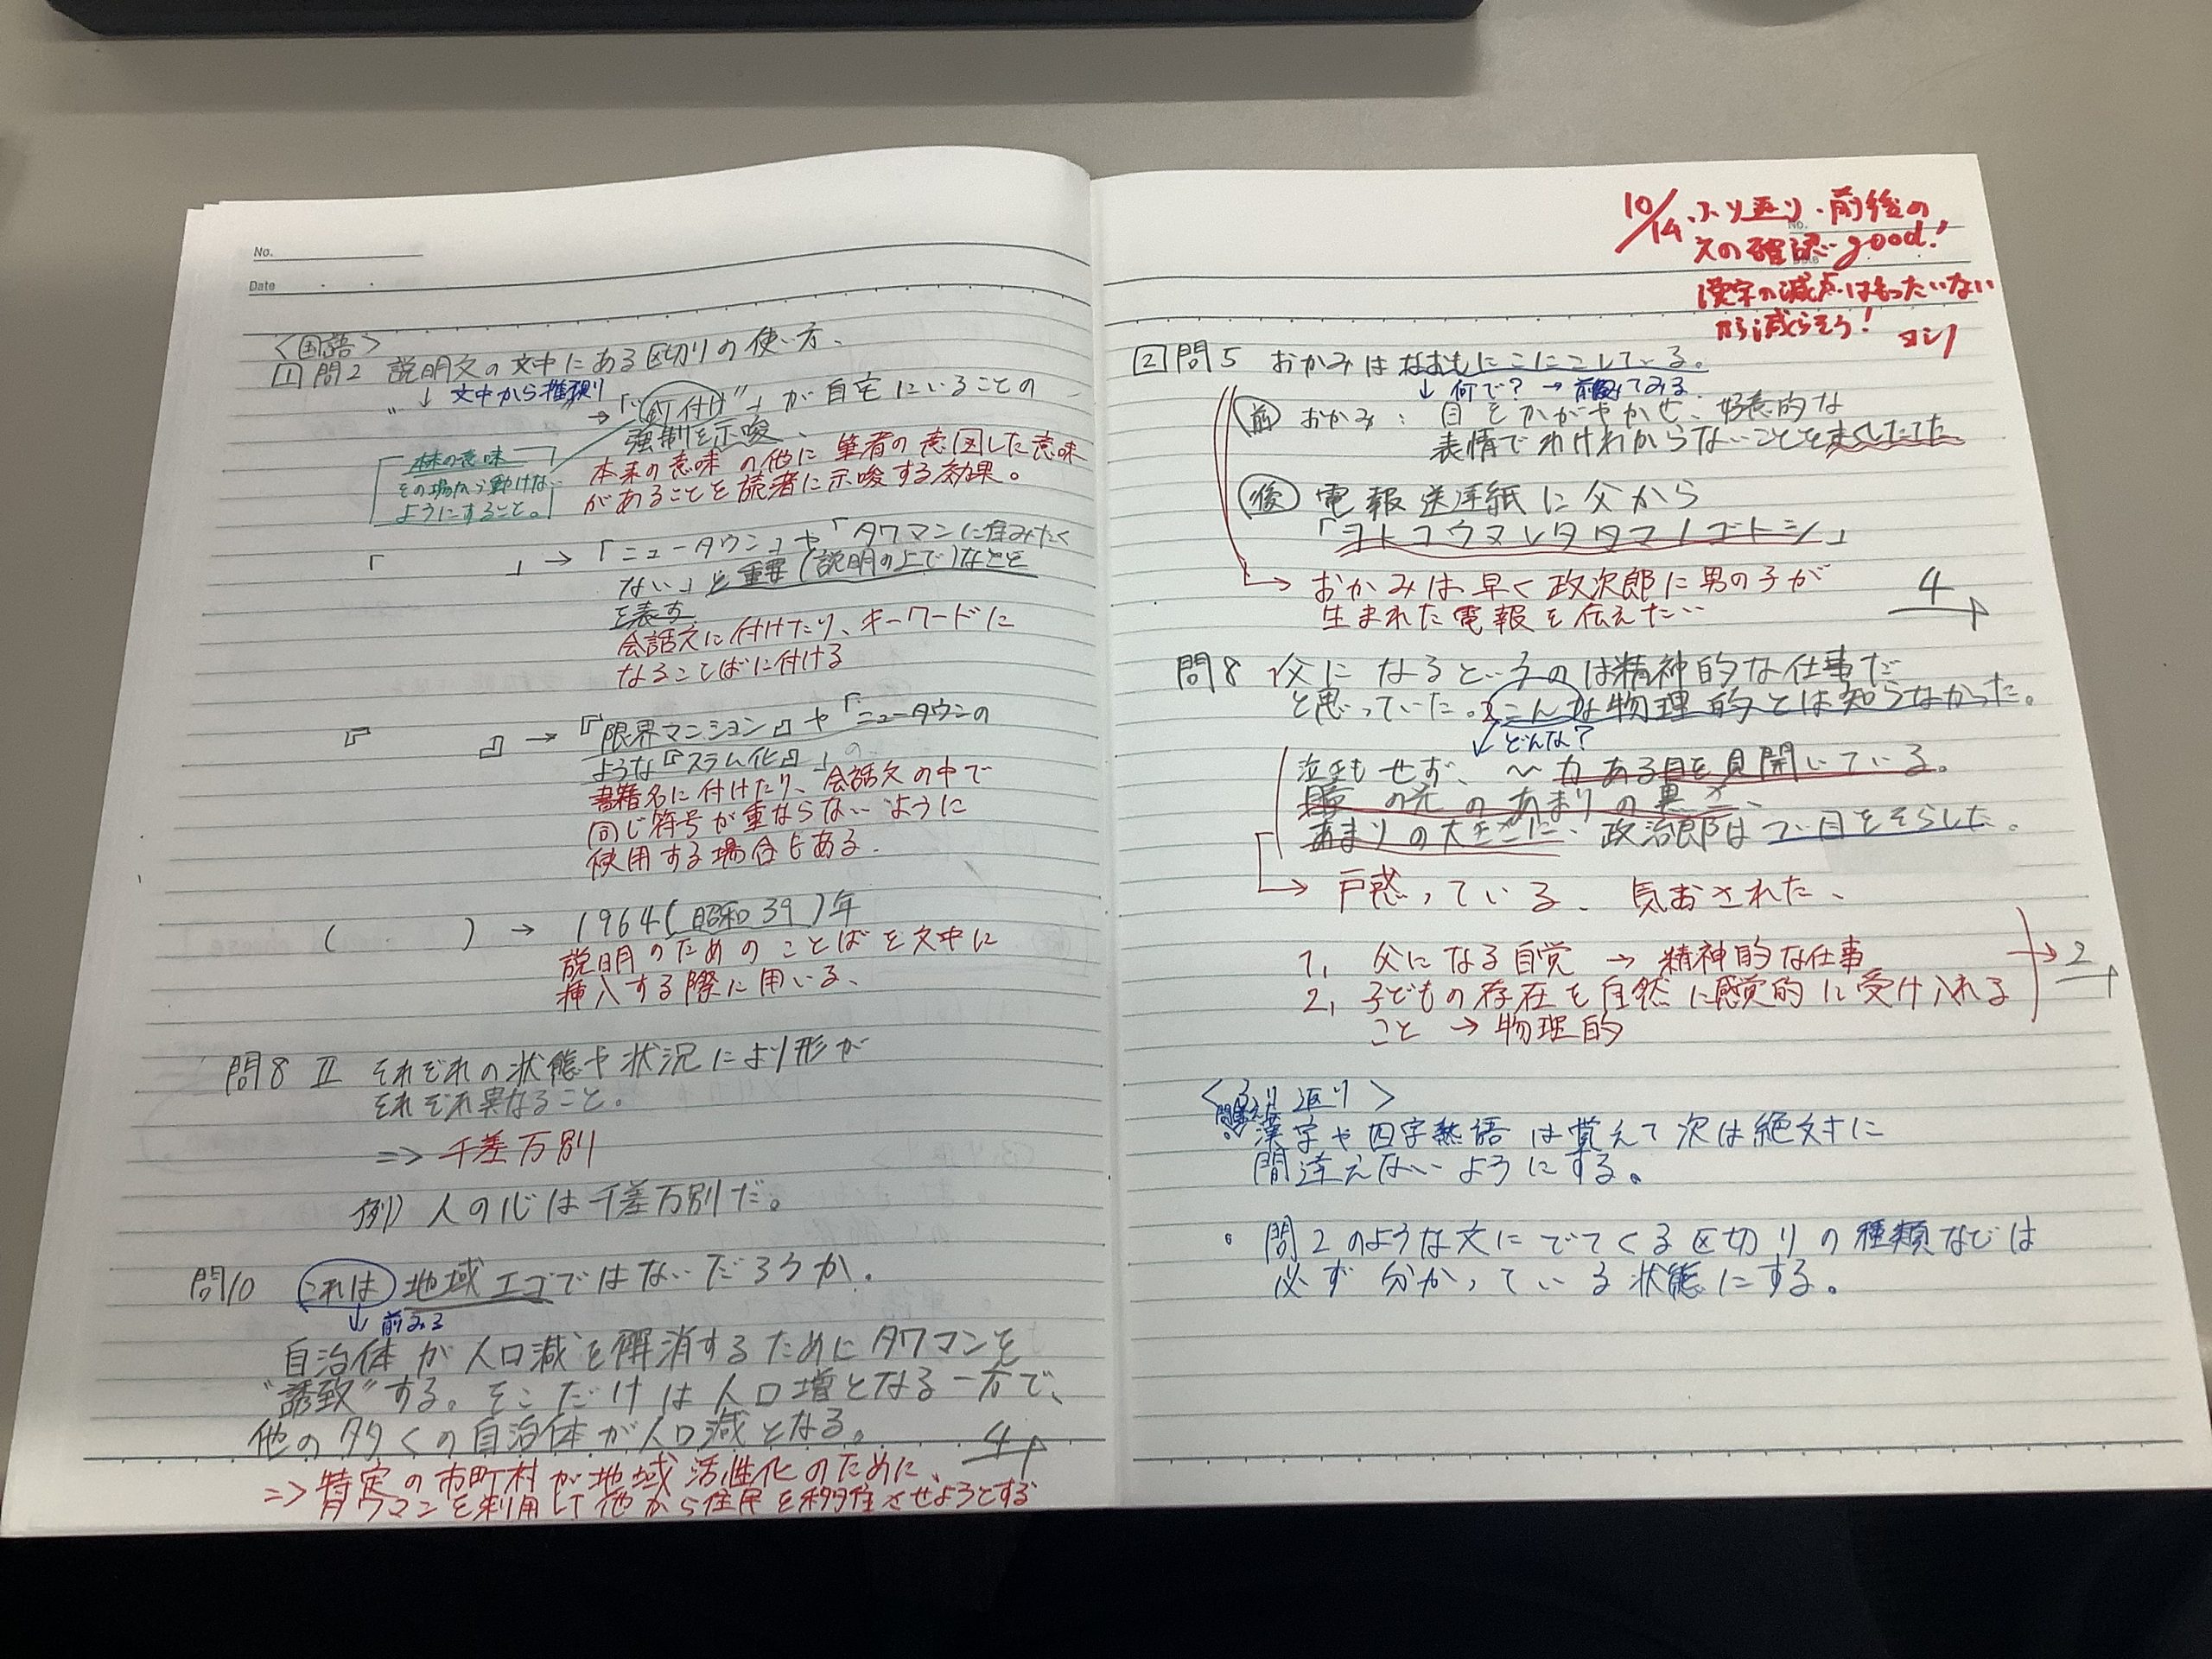 No.
Date
<国語>
1 問2 説明文の文中にある区切りの使い方、
↓ 文中から推測
“ ” → 「“釘付け”」が自宅にいることの
強制を示唆、
本来の意味の他に筆者の意図した意味
があることを読者に示唆する効果。
の意味
その場から動けない
ようにすること。
「 」 → 「ニュータウン」や「タワマンに住みたく
ない」と重要(説明の上で)なこと
を表す
会話文に付けたり、キーワードに
なることばに付ける
『 』 → 『限界マンション』や「ニュータウンの
ような『スラム化』」の
書籍名に付けたり、会話文の中で
同じ符号が重ならないように
使用する場合もある.
( ) → 1964(昭和39)年
説明のためのことばを文中に
挿入する際に用いる、
問8 Ⅱ それぞれの状態や状況により形が
それぞれ異なること。
⇒ 千差万別
例) 人の心は千差万別だ。
問10 これは地域エゴではないだろうか.
↓ 前みる
自治体が人口減を解消するためにタワマンを
“誘致”する。そこだけは人口増となる一方で、
他の多くの自治体が人口減となる。
4
⇒ 特定の市町村が地域活性化のために、
タワマンを利用して他から住民を移住させようとする
10/14 ふり返り・前後の
文の確認good!
漢字の減点はもったいない
から減らそう! ヨシ
2 問5 おかみはなおもにこにこしている。
↓ 何で? → 前後みてみる
前 おかみ: 目をかがやかせ、好意的な
表情でわけわからないことをまくしたてた
後 電報送達紙に父から
「ヲトコウマレタタマノゴトシ」
→ おかみは早く政次郎に男の子が
生まれた電報を伝えたい…
4
問8 父になるというのは精神的な仕事だ
と思っていた。こんな物理的とは知らなかった。
↙ どんな?
泣きもせず、〜力ある目を見開いている。
瞳の光のあまりの真
あまりの大きさに、政治郎はつい目をそらした。
→ 戸惑っている、気おされた、
1, 父になる自覚 → 精神的な仕事
2, 子どもの存在を自然に感覚的に受け入れる
こと → 物理的
→ 2
<ふり返り>
漢字や四字熟語は覚えて次は絶対に
間違えないようにする。
• 問2のような文にでてくる区切りの種類などは
必ず分かっている状態にする。